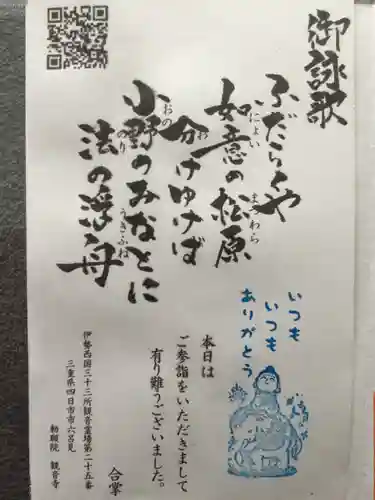 御詠歌
ふだらくや
如意の松原
にょい
まつわら
分けゆけば
お
小野のみなとに
おの
法の浮舟
のり
うきふね
いつも
いつも
ありがとう
本日は
ご参詣をいただきまして
有り難うございました。
合掌
伊勢西国三十三所観音霊場第二十五番
三重県四日市市六呂見
勅願院 観音寺